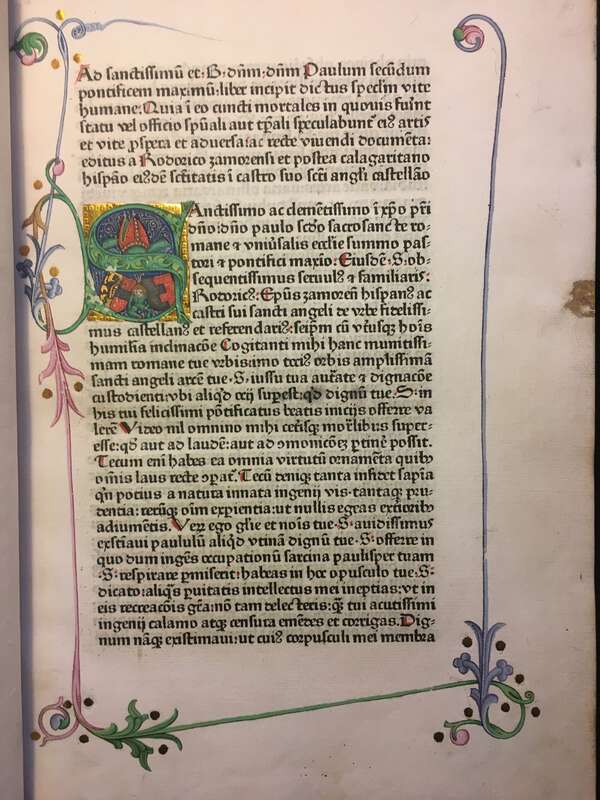 Ad sanctissimū et. B. dn̄m. dn̄m Paulum secūdum
pontificem maximū: liber incipit dictus specl'm vite
humane: Quia ī eo cuncti mortales in quouis fuīnt
statu vel officio spūali aut tp̄ali speculabunt᷑ eiꝰ artis
et vite ꝓspera et aduersa: ac recte viuendi documēta:
editus a Rodorico zamorensi et postea calagaritano
hispāo eiꝰdē sctitatis ī castro suo scti angl'i castellāo
SAnctissimo ac clemētissimo ī xp̄o pr̄i
dn̄o: dn̄o paulo scdo sacrosancte ro-
mane ⁊ vniuersalis eccl'ie summo pas-
tori ⁊ pontifici maxīo: Eiusdē. S. ob-
sequentissimus seruulꝰ ⁊ familiaris:
Rotoricꝰ: Ep̄us zamoren̄ hispanꝰ ac
castri sui sancti angeli de vrbe fidelissi-
mus castellanꝰ et referendariꝰ: seip̄m cū vtriusqꝫ hoīs
humil'ia inclinacōe Cogitanti mihi hanc munitissi-
mam romane tue vrbis: imo tociꝰ orbis amplissimā
sancti angeli arcē tue. S. iussu tua auct̄ate ⁊ dignacōe
custodienti: vbi aliqͥd ocij supest: qͥd dignū tue. S. in
his tui felicissimi pōtificatus beatis inicijs offerre va
lerē Video nil omnino mihi ceterisqꝫ mortl'ibus super-
esse: qd̄ aut ad laudē: aut ad ꝯmonicōeꝫ ꝑtinē possit.
Tecum enī habes ea omnia virtutū ornamēta quibꝰ
om̄is laus recte ꝯparat᷑. Tecū deniqꝫ tanta insidet sapīa
qn̄ potius a natura innata ingenij vis. tantaqꝫ pru-
dentia: rerūqꝫ oīm exp̄ientia: ut nullis egeas exteriorībꝰ
adiumētis. Verꝫ ego gl'ie et nois tue. S. auidissimus
exstiaui paululū aliqͥd vtinā dignū tue. S. offerre in
quo dum ingēs occupationū sarcina paulisper tuam
. S. respirare ꝑmiserit: habeas in hoc opusculo tue. S.
dicato: aliqͣs ꝑuitatis intellectus mei ineptias: vt in
eis recreacōis gr̄a: nō tam delecteris: qͣꝫ tui acutissimi
ingenij calamo atqꝫ censura emēdes et corrigas. Dig-
num nāqꝫ existimaui: ut cuiꝰ corpusculi mei membra